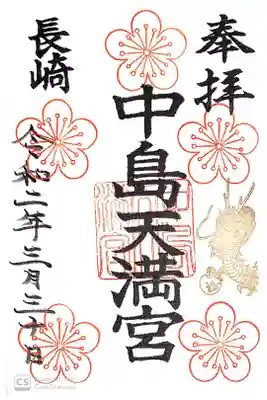 奉拝
中島天満宮
長崎
令和二年三月三十日
CS